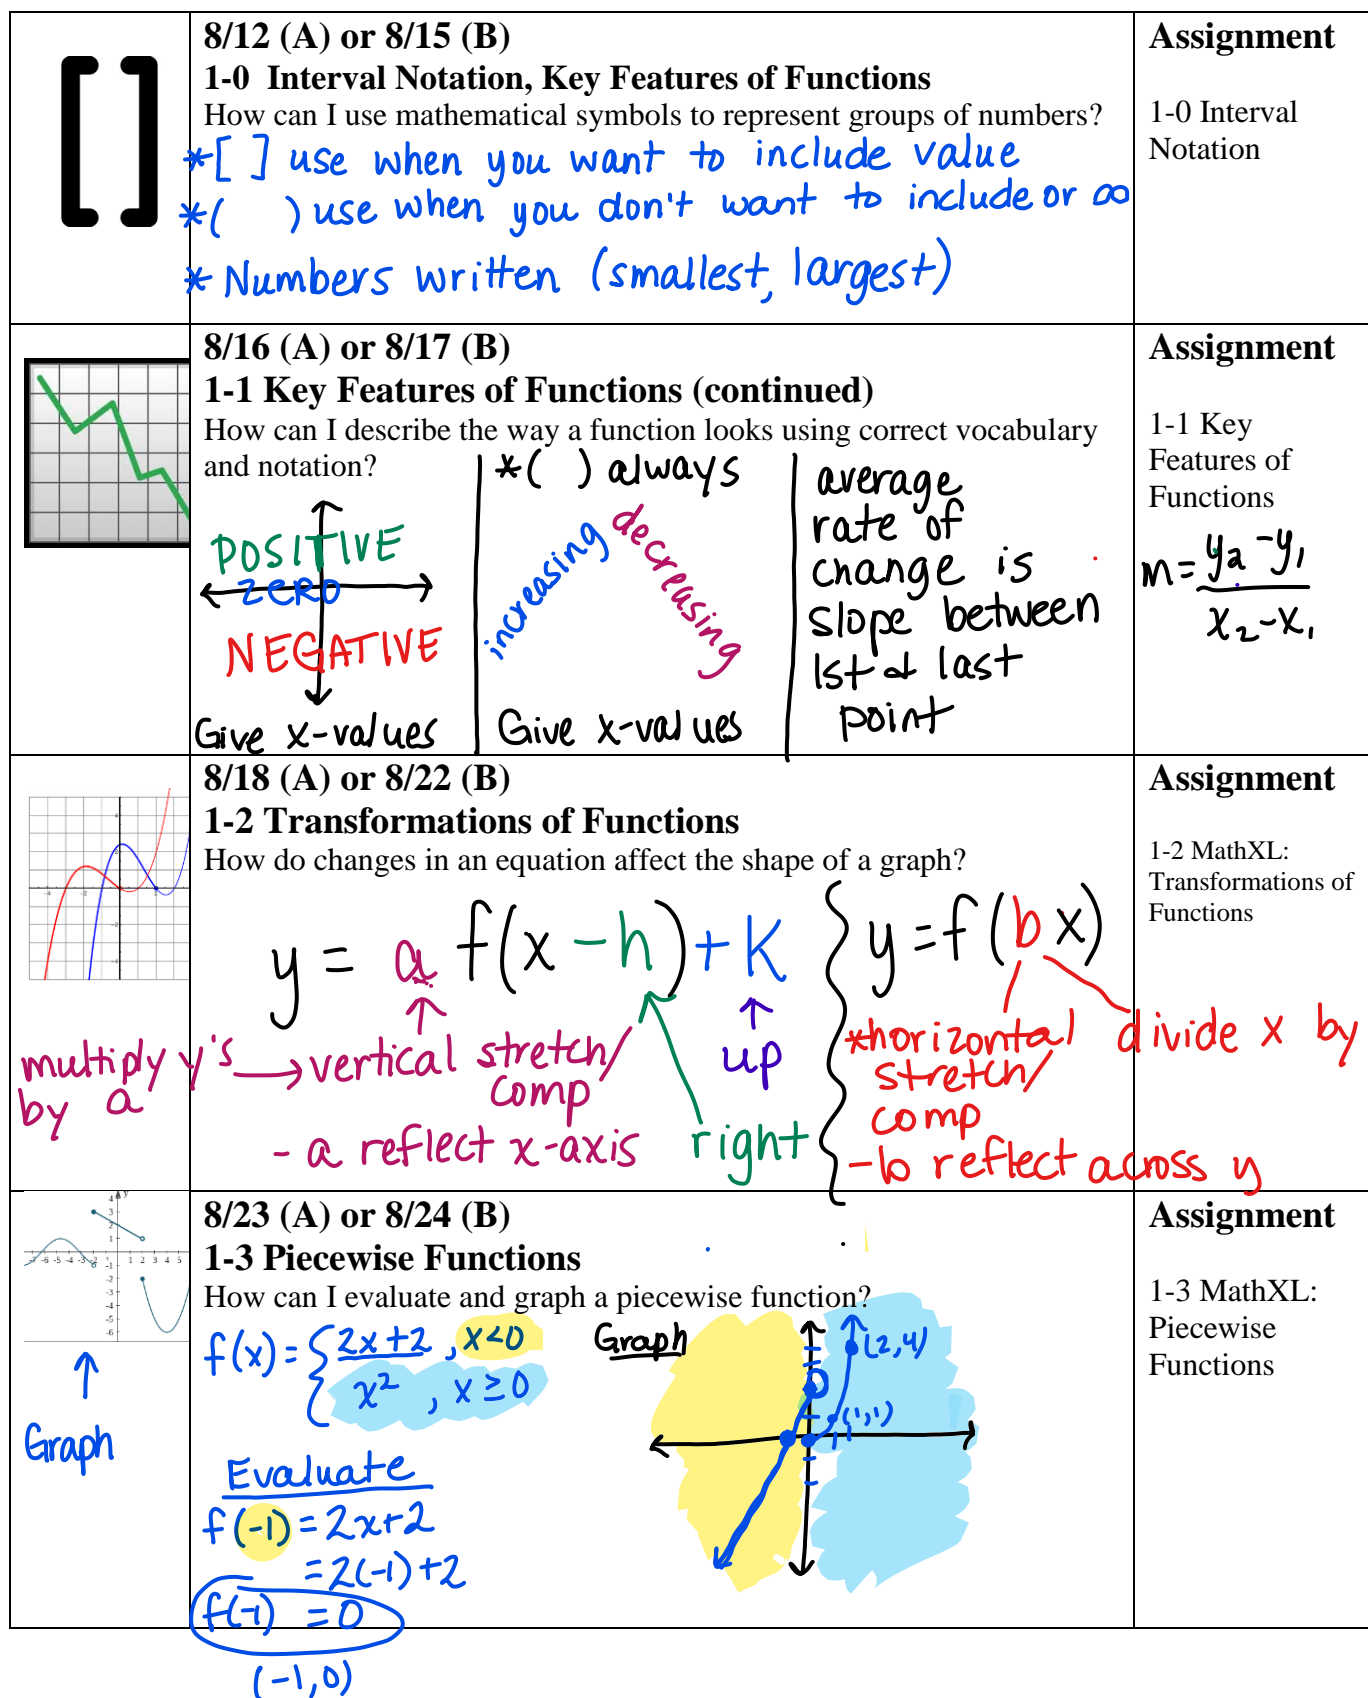 8/12 (A) or 8/15 (B)
1-0 Interval Notation, Key Features of Functions
How can I use mathematical symbols to represent groups of numbers?
*[ ] use when you want to include value
*( ) use when you don't want to include or ∞
* Numbers written (smallest, largest)
Assignment
1-0 Interval
Notation
8/16 (A) or 8/17 (B)
1-1 Key Features of Functions (continued)
How can I describe the way a function looks using correct vocabulary
and notation?
POSITIVE
ZERO
NEGATIVE
Give x-values
*( ) always
increasing
decreasing
Give x-values
average
rate of
change is
slope between
1st & last
point
Assignment
1-1 Key
Features of
Functions
m = y₂ - y₁
x₂ - x₁
8/18 (A) or 8/22 (B)
1-2 Transformations of Functions
How do changes in an equation affect the shape of a graph?
y = a f(x - h) + K
multiply y's → vertical stretch/
by a
comp
- a reflect x-axis
right
up
y = f(bx)
*horizontal
stretch/
comp
divide x by
-b reflect across y
Assignment
1-2 MathXL:
Transformations of
Functions
8/23 (A) or 8/24 (B)
1-3 Piecewise Functions
How can I evaluate and graph a piecewise function?
Graph
f(x) = { 2x+2, x<0
x², x ≥ 0
Evaluate
f(-1) = 2x+2
= 2(-1)+2
f(-1) = 0
(-1,0)
Graph
(2,4)
(1,1)
Assignment
1-3 MathXL:
Piecewise
Functions